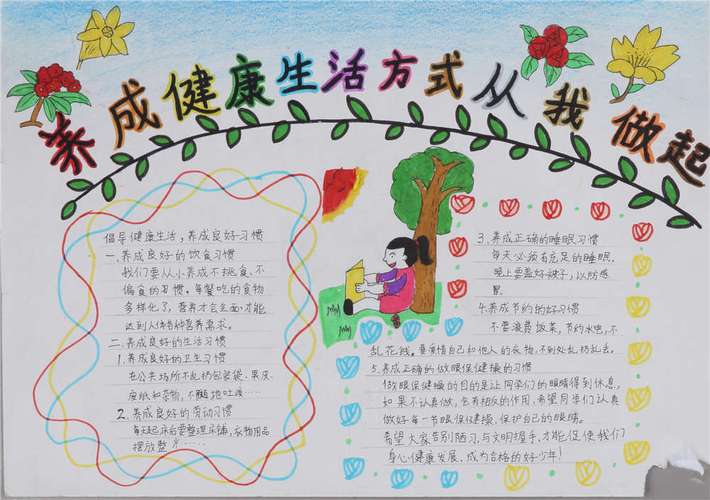 养成健康生活方式从我做起
倡导健康生活,养成良好习惯
一.养成良好的饮食习惯
我们要从小养成不挑食、不
偏食的习惯。每餐吃的食物
多样化了,营养才会全面,才能
达到人体的营养需求。
二.养成良好的生活习惯
1.养成良好的卫生习惯
在公共场所不乱扔包装袋、果皮、
废纸和杂物,不随地吐痰……
2.养成良好的劳动习惯
每天起床后要整理床铺,衣物用品
摆放整齐……
3.养成正确的睡眠习惯
每天必须有充足的睡眠,
晚上要盖好被子,以防感
冒
4.养成节约的好习惯
不要浪费饭菜,节约水电,不
乱花钱。要爱惜自己和他人的衣物,不到处乱扔乱丢。
5.养成正确的做眼保健操的习惯
做眼保健操的目的是让同学们的眼睛得到休息,
如果不认真做,会有相反的作用,希望同学们认真
做好每一节眼保健操,保护自己的眼睛。
希望大家告别陋习,与文明握手,才能促使我们
身心健康发展,成为合格的好少年!